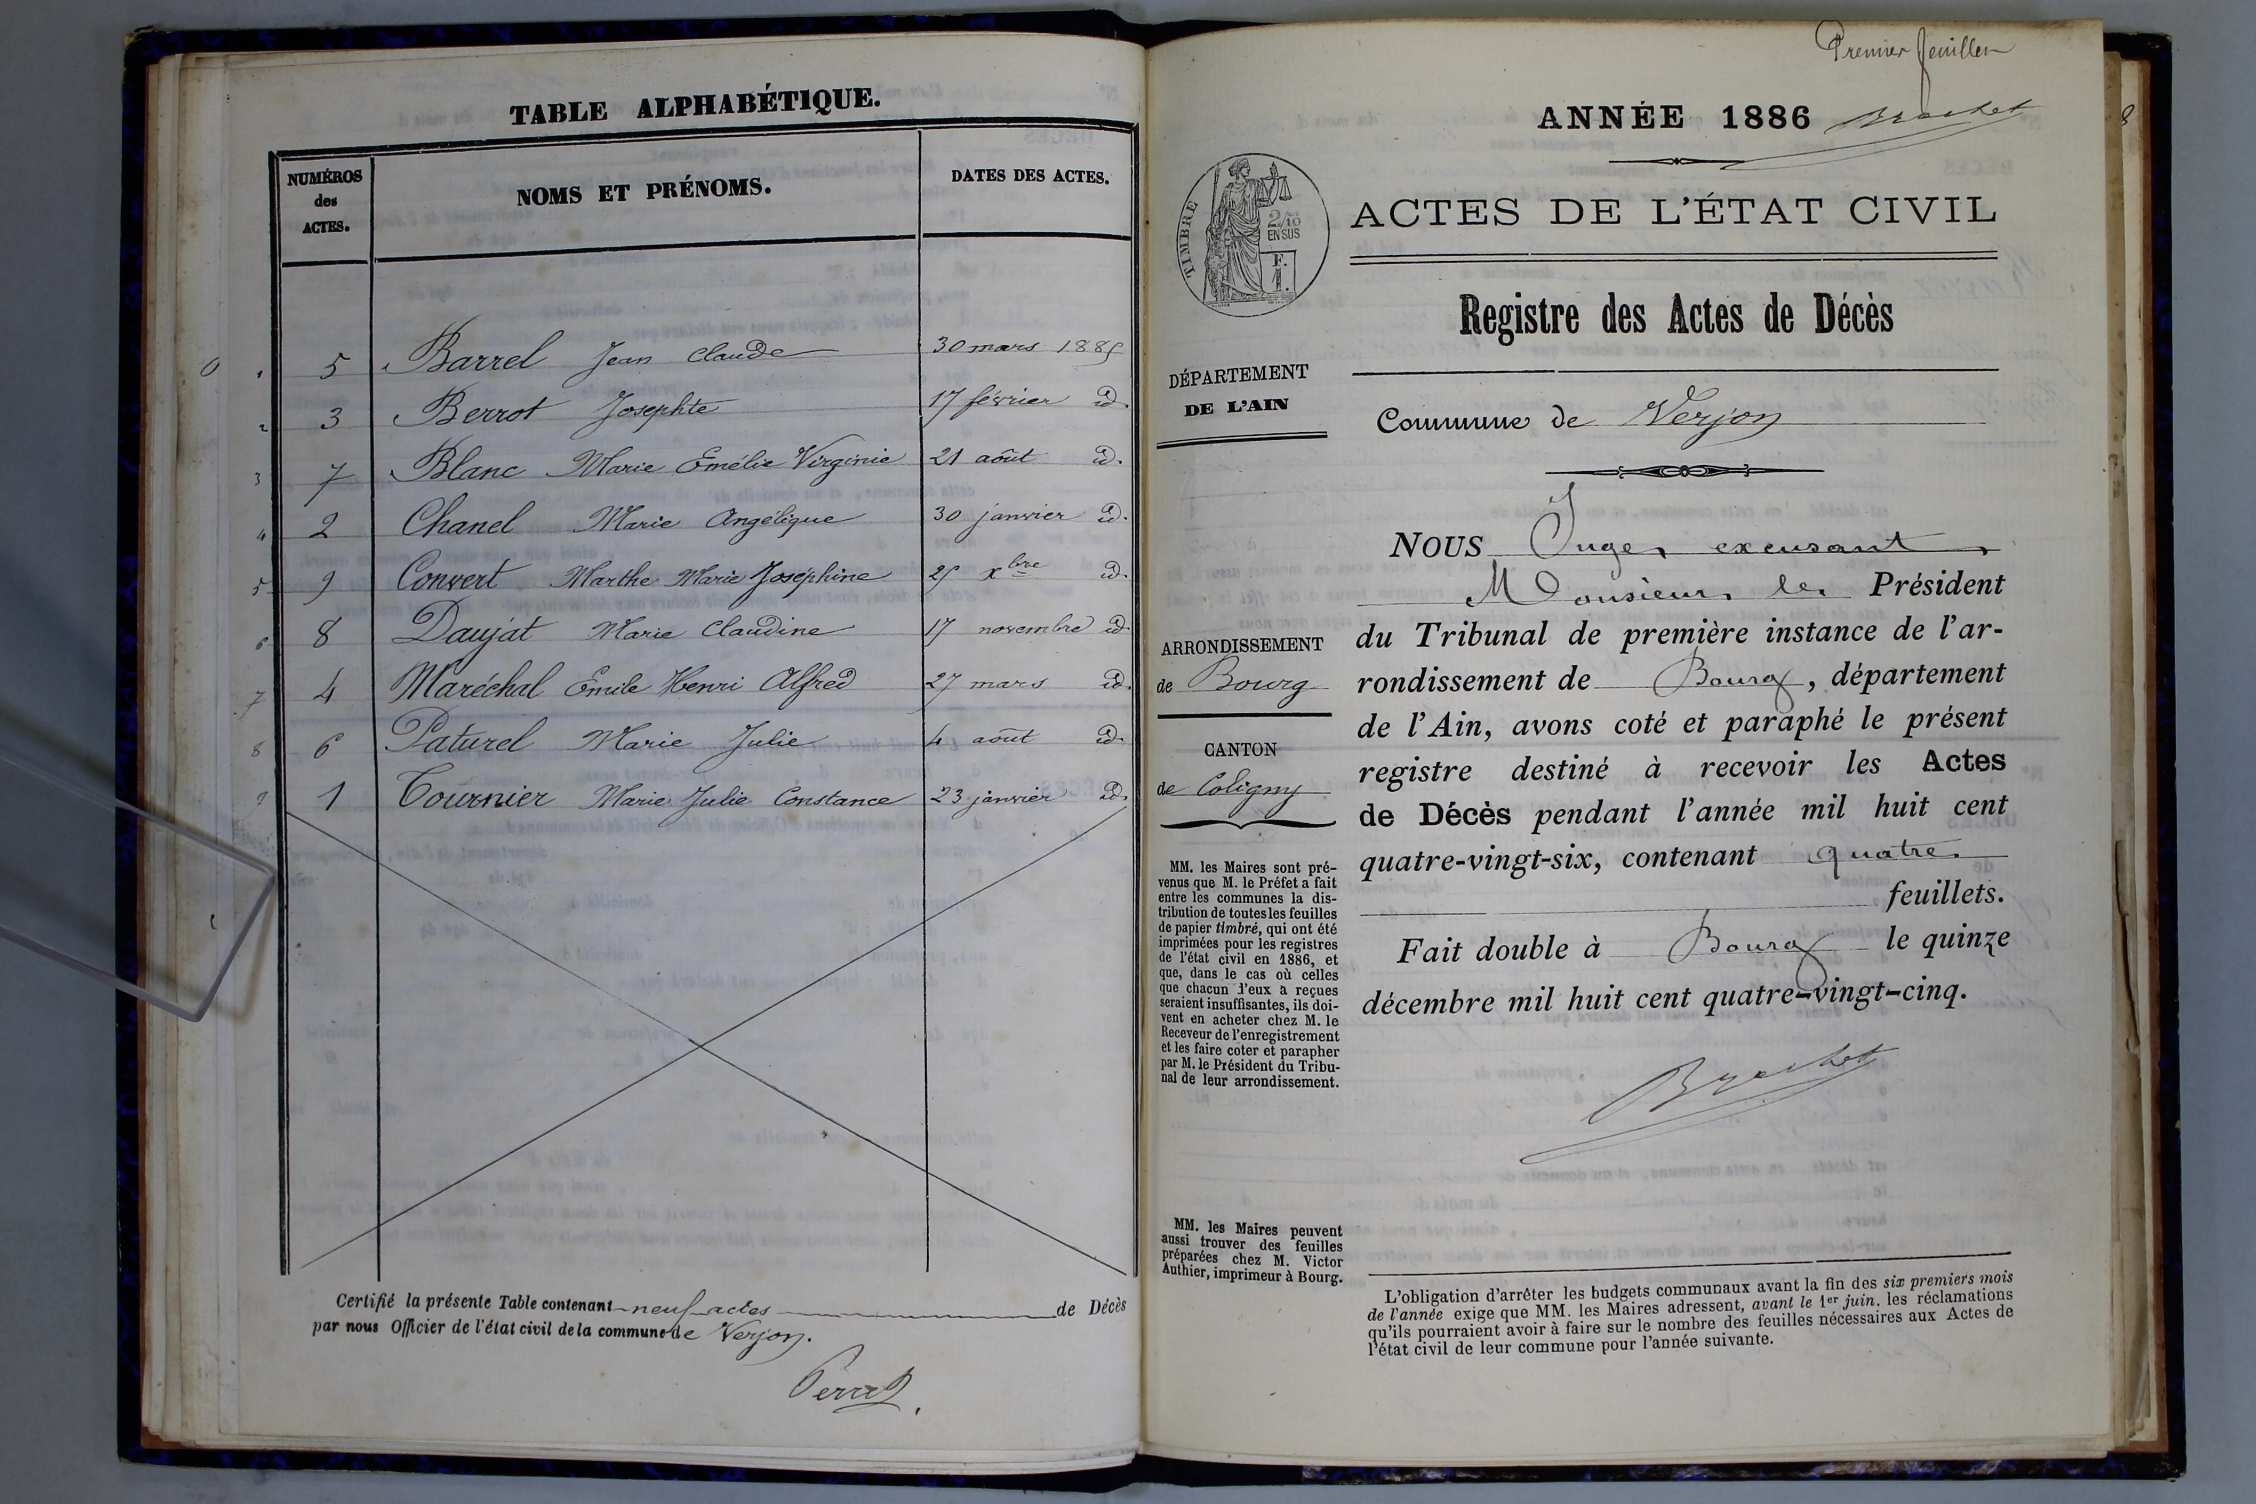 TABLE ALPHABÉTIQUE.
NUMÉROS des ACTES.
NOMS ET PRÉNOMS.
DATES DES ACTES.
1 5 Barrel Jean Claude 30 mars 1885
2 3 Berrot Josephte 17 février id.
3 7 Blanc Marie Emélie Virginie 21 août id.
4 2 Chanel Marie Angélique 30 janvier id.
5 9 Convert Marthe Marie Joséphine 25 xbre id.
6 8 Daujat Marie Claudine 17 novembre id.
7 4 Maréchal Emile Henri Alfred 27 mars id.
8 6 Paturel Marie Julie 4 août id.
9 1 Tournier Marie Julie Constance 23 janvier id.
Certifié la présente Table contenant neuf actes de Décès
par nous Officier de l'état civil de la commune de Verjon.
Premier feuillet
ANNÉE 1886 Brochet
TIMBRE
2/10
EN SUS
F.
1.
ACTES DE L'ÉTAT CIVIL
Registre des Actes de Décès
DÉPARTEMENT
DE L'AIN
Commune de Verjon
ARRONDISSEMENT
de Bourg
CANTON
de Coligny
MM. les Maires sont pré-
venus que M. le Préfet a fait
entre les communes la dis-
tribution de toutes les feuilles
de papier timbré, qui ont été
imprimées pour les registres
de l'état civil en 1886, et
que, dans le cas où celles
que chacun d'eux a reçues
seraient insuffisantes, ils doi-
vent en acheter chez M. le
Receveur de l'enregistrement
et les faire coter et parapher
par M. le Président du Tribu-
nal de leur arrondissement.
MM. les Maires peuvent
aussi trouver des feuilles
préparées chez M. Victor
Authier, imprimeur à Bourg.
NOUS Juge, excusant
Monsieur le Président
du Tribunal de première instance de l'ar-
rondissement de Bourg, département
de l'Ain, avons coté et paraphé le présent
registre destiné à recevoir les Actes
de Décès pendant l'année mil huit cent
quatre-vingt-six, contenant quatre
feuillets.
Fait double à Bourg le quinze
décembre mil huit cent quatre-vingt-cinq.
Brochet
L'obligation d'arrêter les budgets communaux avant la fin des six premiers mois
de l'année exige que MM. les Maires adressent, avant le 1er juin, les réclamations
qu'ils pourraient avoir à faire sur le nombre des feuilles nécessaires aux Actes de
l'état civil de leur commune pour l'année suivante.